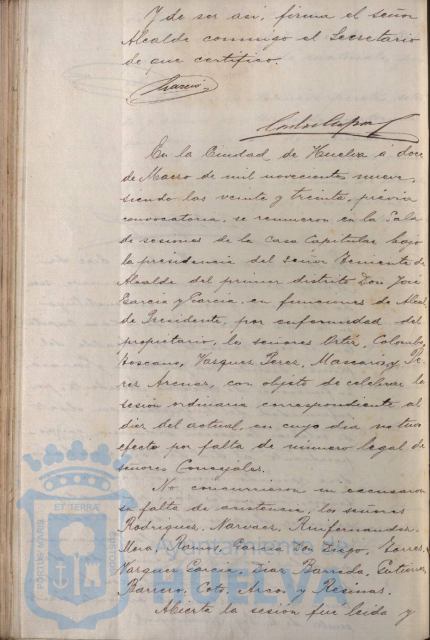 Y de ser así, firma el señor
Alcalde conmigo el Secretario
de que certifico.
García
En la Ciudad de Huelva á doce
de Marzo de mil novecientos nueve,
siendo las veinte y treinta, previa
convocatoria, se reunieron en la Sala
de sesiones de la Casa Capitular bajo
la presidencia del señor Teniente de
Alcalde del primer distrito Don José
García y García, en funciones de Alcalde
Presidente, por enfermedad del
propietario, los señores Ortiz, Colombo,
Toscano, Vazquez Perez, Mascarós y Pe-
rez Arenas, con objeto de celebrar la
sesión ordinaria correspondiente al
diez del actual, en cuyo día no tuvo
efecto por falta de número legal de
señores Concejales.
No concurrieron ni excusaron
su falta de asistencia, los señores
Rodriguez, Narvaez, Ruifernandez,
Mora, Ramos, García Don Diego, Torres,
Vazquez García, Diaz Barreda, Gutierrez,
Barrero, Coto, Arcos y Resinas.
Abierta la sesión fué leida y
ET TERRA
PORTUS MARIS
CUSTODIA
Ayuntamiento de
HUELVA